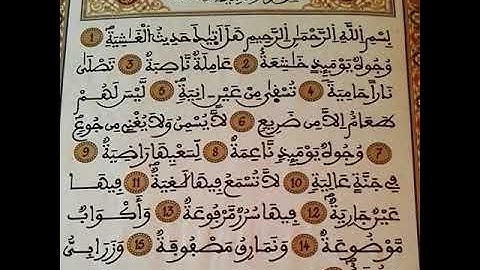 بِسْمِ اللَّهِ الرَّحْمَٰنِ الرَّحِيمِ هَلَ اَتَيٰكَ حَدِيثُ الْغَٰشِيَةِ 1
وُجُوهٌ يَوْمَئِذٍ خَٰشِعَةٌ 2 عَامِلَةٌ نَّاصِبَةٌ 3 تَصْلَىٰ
نَاراً حَامِيَةً 4 تُسْقَىٰ مِنْ عَيْنٍ اٰنِيَةٍ 5 لَّيْسَ لَهُمْ
طَعَامٌ اِلَّا مِن ضَرِيعٍ 6 لَّا يُسْمِنُ وَلَا يُغْنِي مِن جُوعٍ
7 وُجُوهٌ يَوْمَئِذٍ نَّاعِمَةٌ 8 لِّسَعْيِهَا رَاضِيَةٌ 9
فِي جَنَّةٍ عَالِيَةٍ 10 لَّا تُسْمَعُ فِيهَا لَٰغِيَةٌ 11 فِيهَا
عَيْنٌ جَارِيَةٌ 12 فِيهَا سُرُرٌ مَّرْفُوعَةٌ 13 وَأَكْوَابٌ
مَّوْضُوعَةٌ 14 وَنَمَارِقُ مَصْفُوفَةٌ 15 وَزَرَابِيُّ